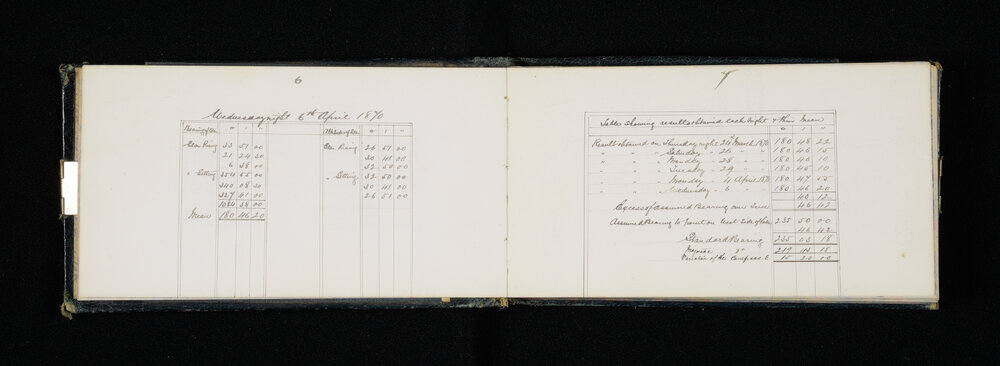 6
Wednesday night 6th April 1870
Bearing of Star ° ' " Altitude of Star ° ' "
Star Rising 33 51 00 Star Rising 26 51 00
21 24 30 30 41 00
6 38 00 32 50 00
" Setting 354 55 00 " Setting 32 50 00
340 08 30 30 41 00
327 41 00 26 51 00
1084 38 00
Mean 180 46 20
7
Table showing results obtained each Night & their Mean
° ' "
Result obtained on Thursday night 24th March 1870 180 48 22
" " " Saturday " 26 " " 180 46 15
" " " Monday " 28 " " 180 46 10
" " " Tuesday " 29 " " 180 45 10
" " " Monday " 4 April 1870 180 47 55
" " " Wednesday " 6 " " 180 46 20
40 12
Excess of assumed Bearing over True 46 42
Assumed Bearing to point on West Side of Lake 235 50 00
46 42
Standard Bearing 235 03 18
Magnetic Do 219 43 18
Variation of the Compass E. 15 20 00